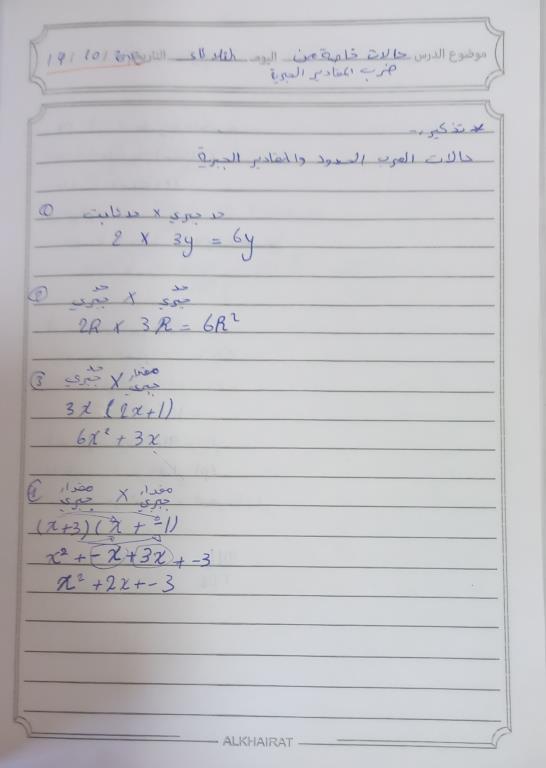 موضوع الدرس حالات خاصة من اليوم الثلاثاء التاريخ 19/10/
ضرب المقادير الجبرية
* تذكير :-
حالات الضرب الحدود والمقادير الجبرية
① حد جبري × حد ثابت
2 × 3y = 6y
② حد جبري × حد جبري
2R × 3R = 6R²
③ حد جبري × مقدار جبري
3x (2x+1)
6x² + 3x
④ مقدار جبري × مقدار جبري
(x+3)(x + -1)
x² + -x + 3x + -3
x² + 2x + -3
ALKHAIRAT